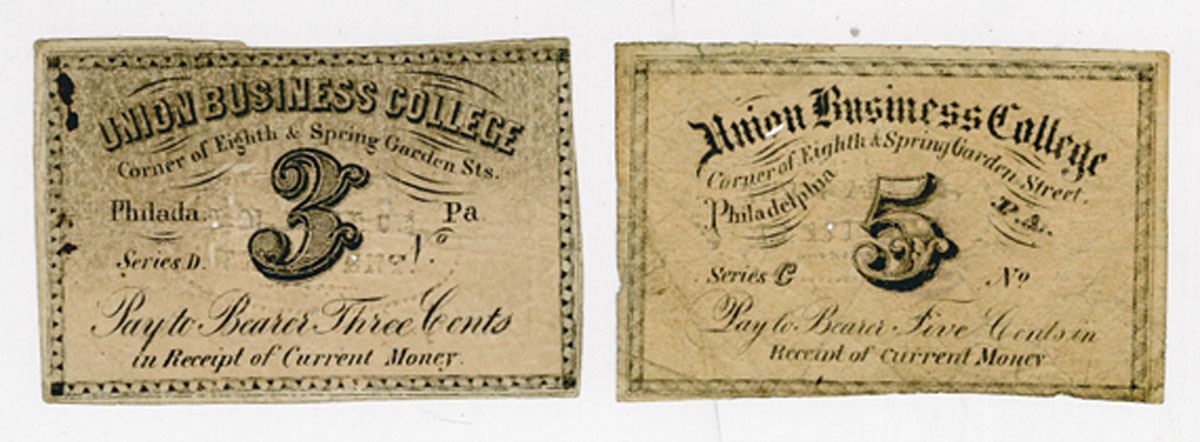 UNION BUSINESS COLLEGE
Corner of Eighth & Spring Garden Sts.
3
Philada. Pa
Series D. No
Pay to Bearer Three Cents
in Receipt of Current Money.
Union Business College
Corner of Eighth & Spring Garden Street.
Philadelphia PA.
5
Series C No
Pay to Bearer Five Cents in
Receipt of Current Money